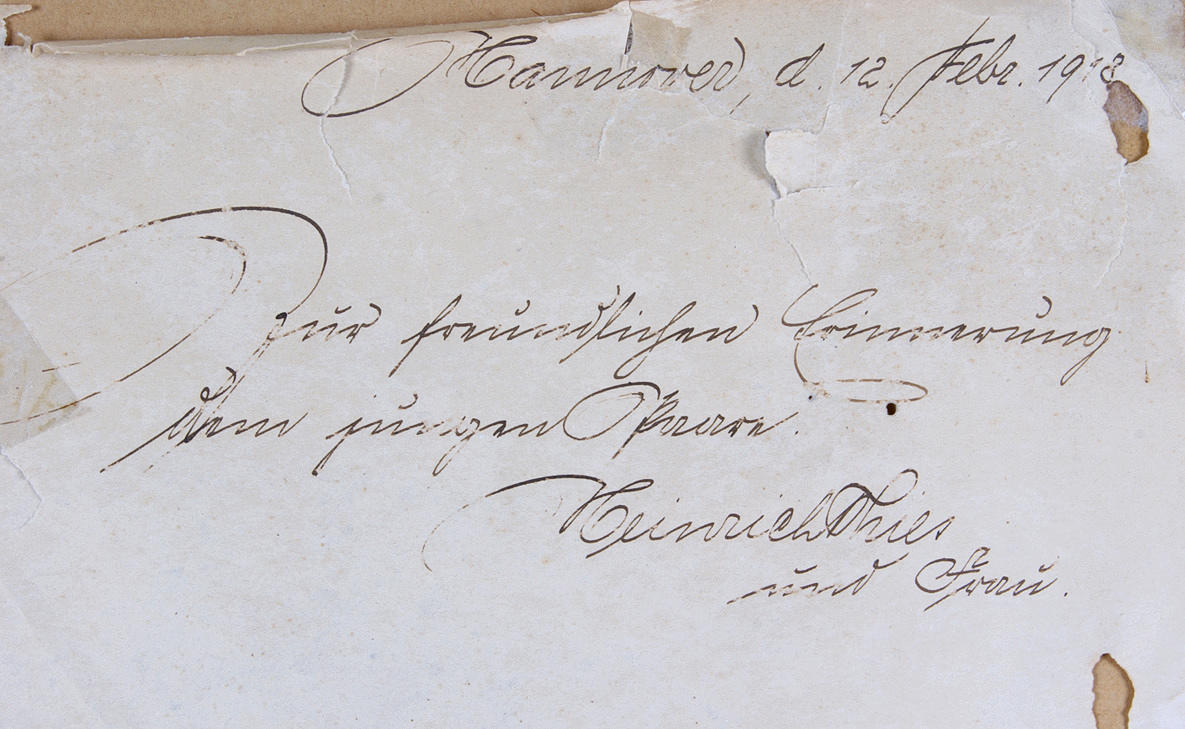 Hannover, d. 12. Febr. 1918
Zur freundlichen Erinnerung
dem jungen Paare.
Heinrich Thies
und Frau.